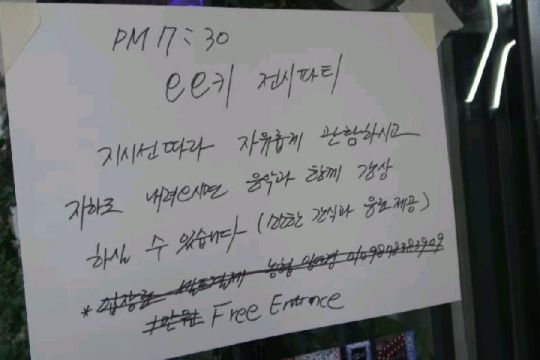 PM 7:30
ee키 전시파티
지시선따라 자유롭게 관람하시고
지하로 내려오시면 음악과 함께 감상
하실 수 있습니다 (간단한 간식과 음료 제공)
* 입장료
Free Entrance